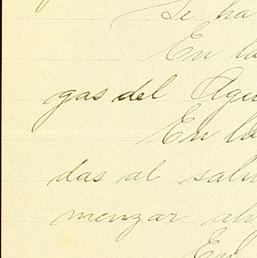 Se ha
En lo
gas del Agu
En lo
das al salu
menzar ah
En